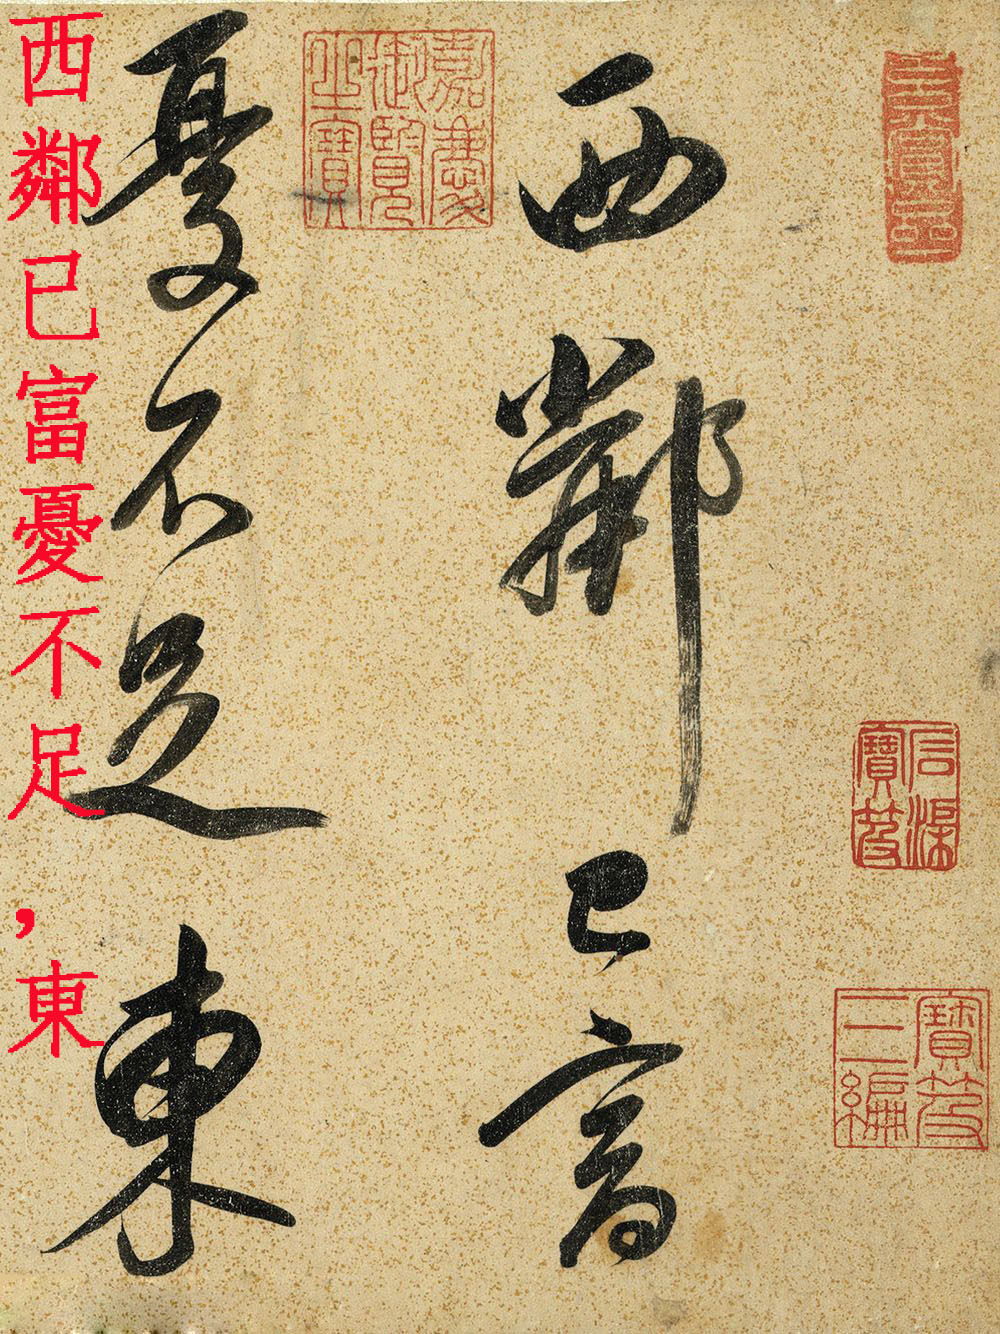 石渠
寶笈
寶笈
三編
西鄰已富
嘉慶
御覽
之寶
憂不足東
西鄰已富憂不足，東